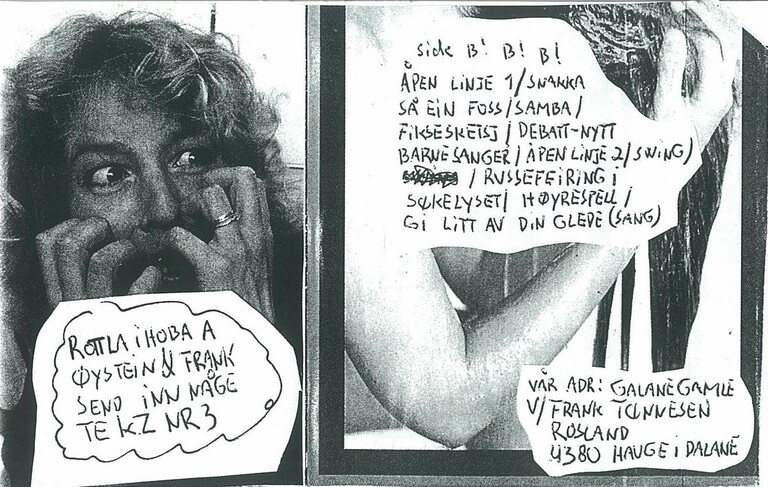 ROTTLA I HOBA A
ØYSTEIN & FRANK
SEND INN NÅGE
TE K.Z NR 3
side B! B! B!
ÅPEN LINJE 1/SNAKKA
SÅ EIN FOSS/SAMBA/
FIKSESKETSJ/DEBATT-NYTT
BARNESANGER/ÅPEN LINJE 2/SWING)
/RUSSEFEIRING I
SØKELYSET/HØYRESPELL/
GI LITT AV DIN GLEDE (SANG)
VÅR ADR: GALANE GAMLE
V/FRANK TØNNESEN
ROSLAND
4380 HAUGE I DALANE